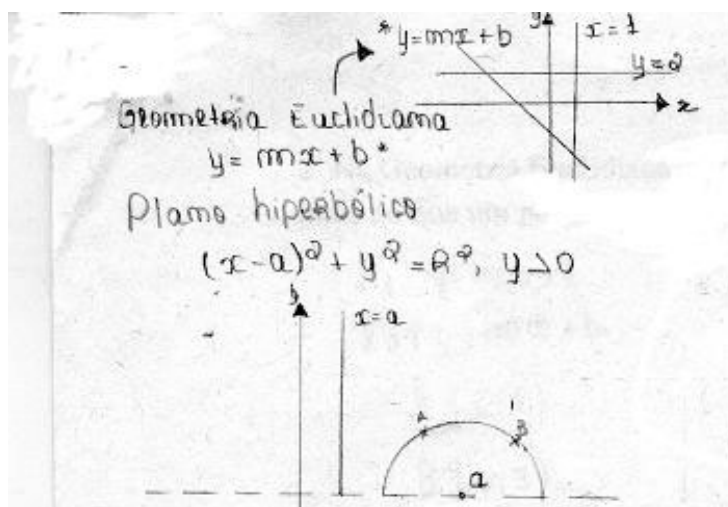 * y=mx+b
y
x=1
y=2
x
Geometria Euclidiana
y= mx+b*
Plano hiperbólico
(x-a)²+ y²=R², y>0
x=a
A
B
a